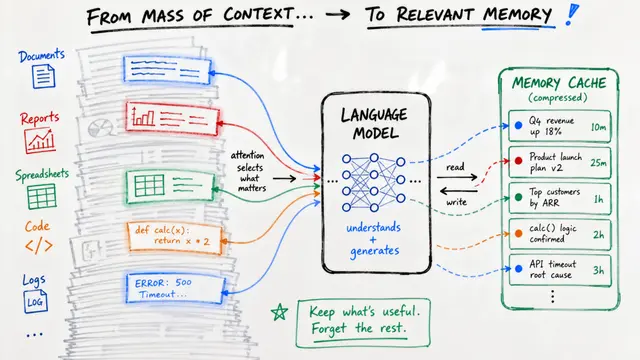 FROM MASS OF CONTEXT... → TO RELEVANT MEMORY!
Documents
Reports
Spreadsheets
Code
</>
Logs
LOG
...
def calc(x):
return x * 2
ERROR: 500
Timeout...
attention
selects
what
matters
LANGUAGE
MODEL
...
...
understands
+
generates
read
write
MEMORY CACHE
(compressed)
Q4 revenue
up 18%
10m
Product launch
plan v2
25m
Top customers
by ARR
1h
calc() logic
confirmed
2h
API timeout
root cause
3h
⋮
Keep what's useful.
Forget the rest.